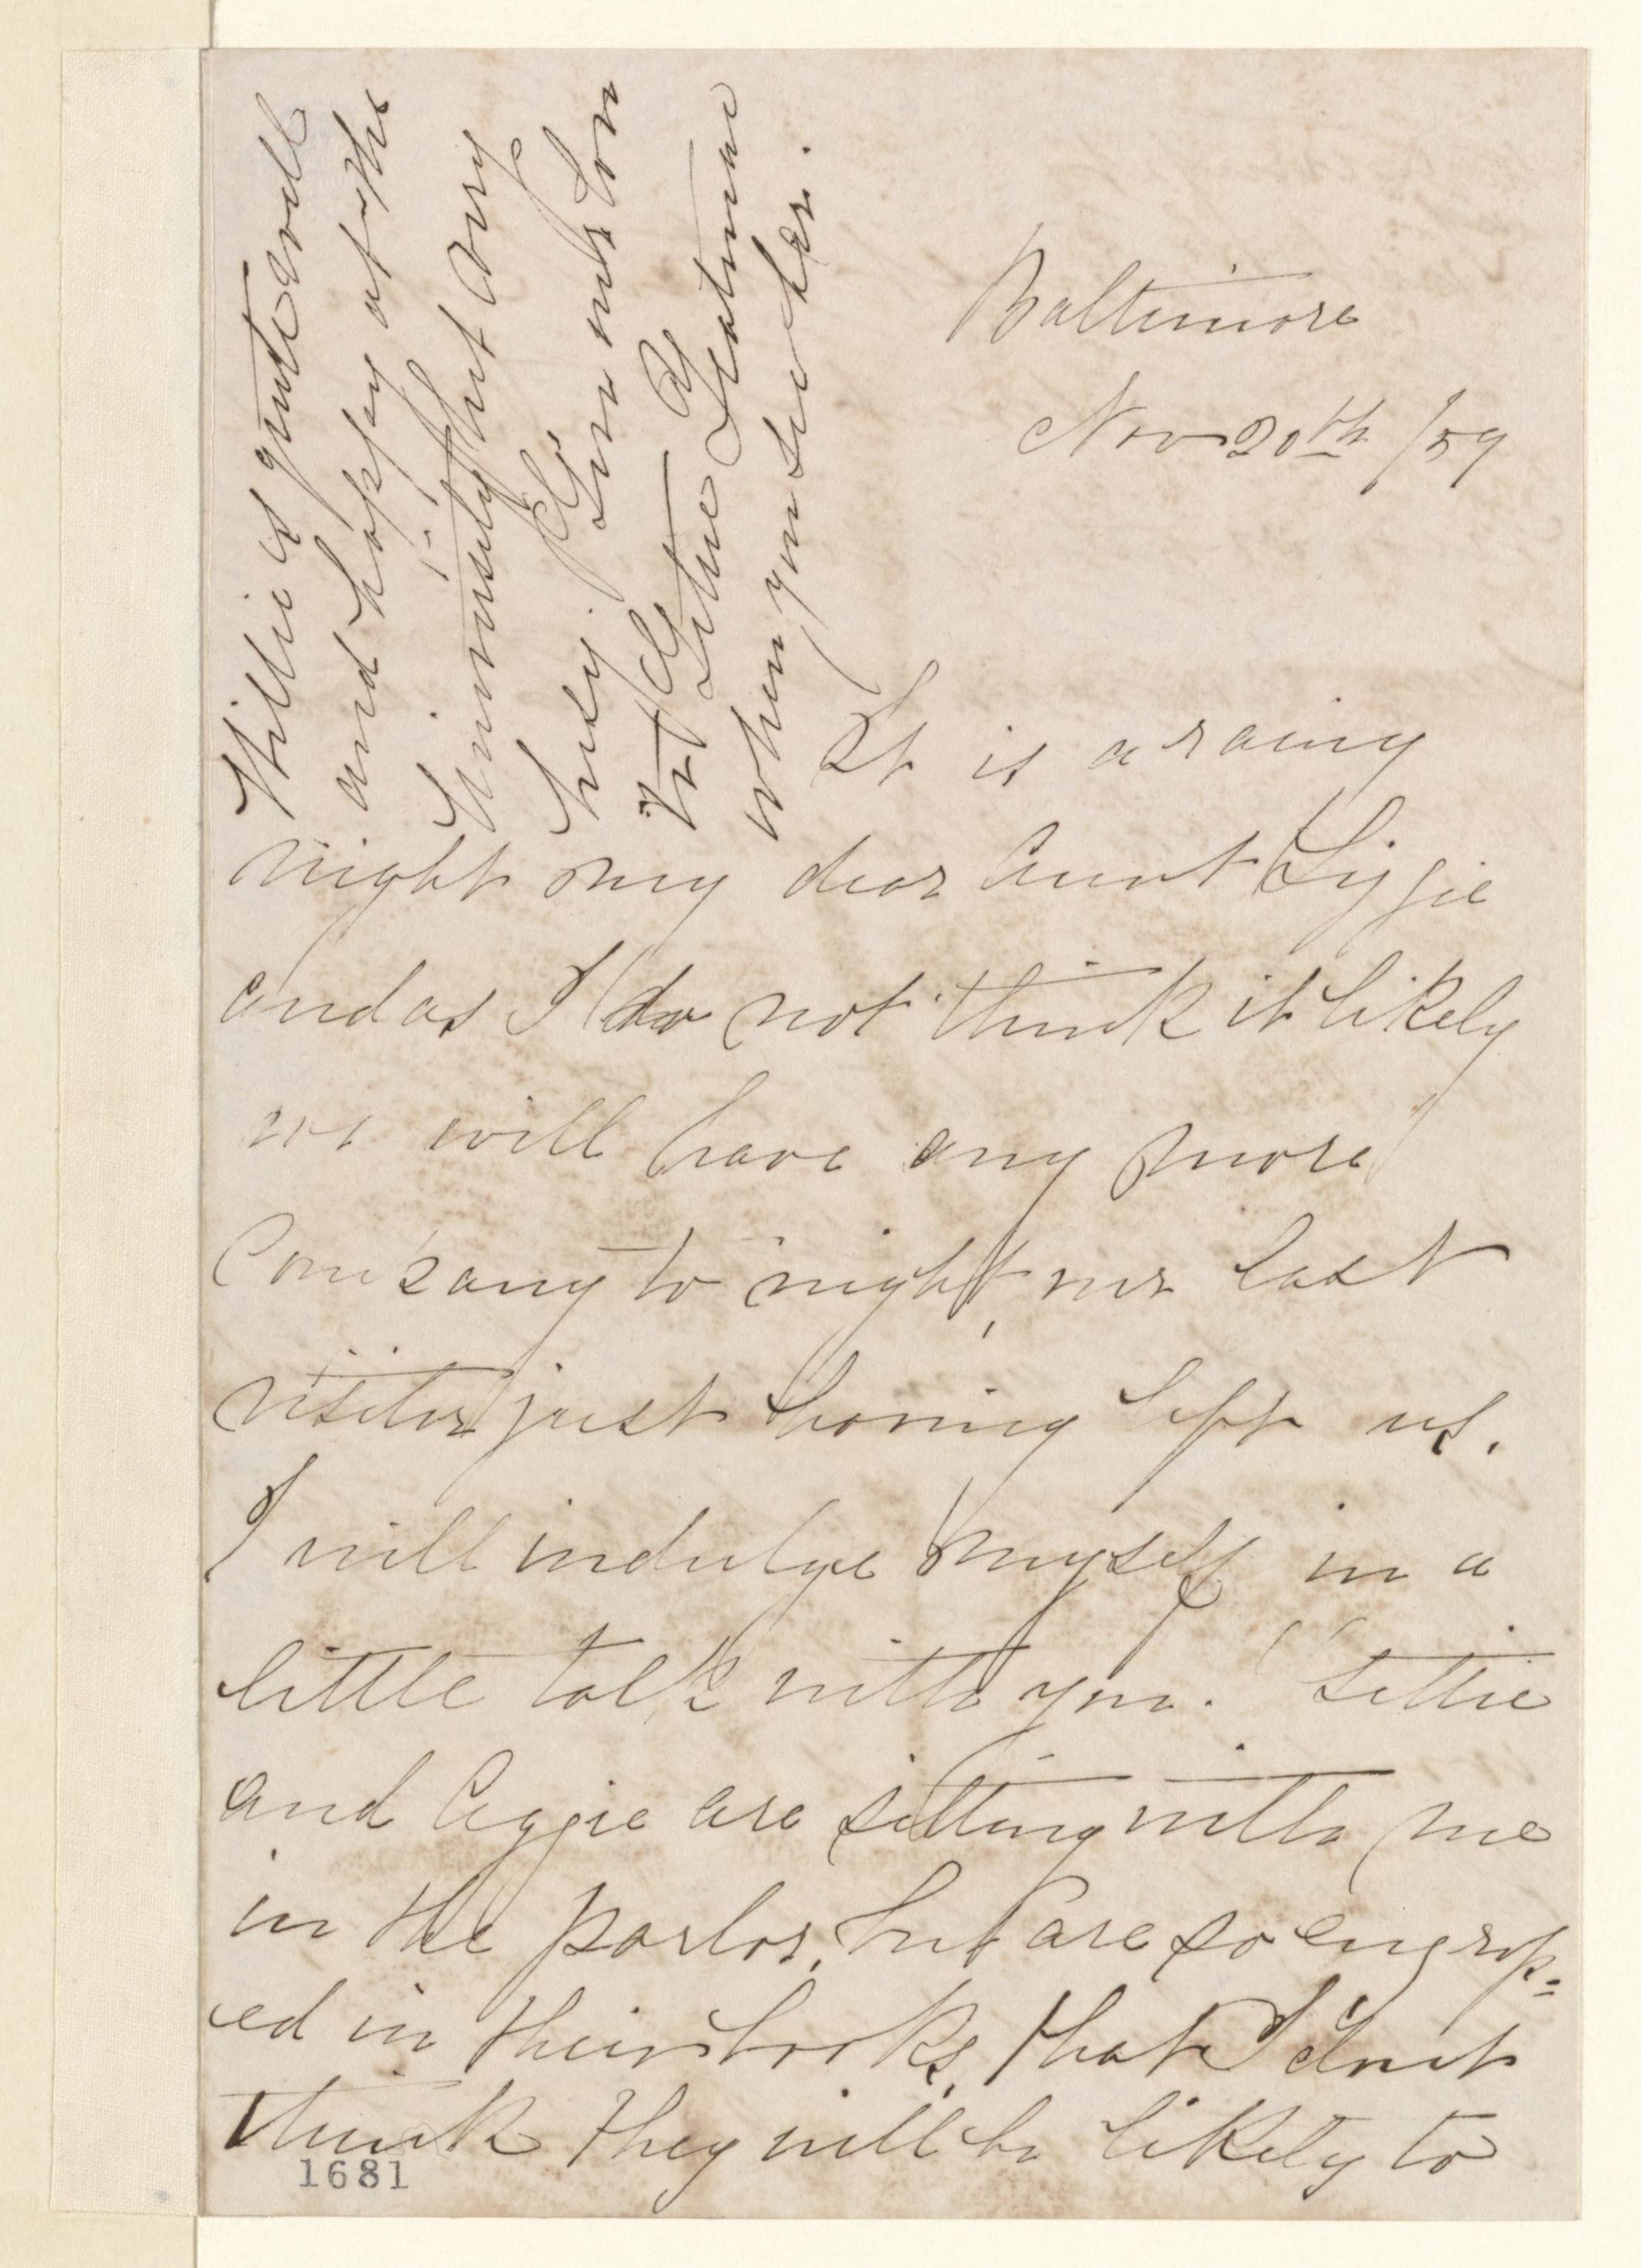 Baltimore
Nov 20th /59
It is a rainy
night my dear Aunt Lizzie
and as I do not think it likely
we will have any more
Company to night, our last
visitor just having left us.
I will indulge myself in a
little talk with you. Lettie
and Aggie are sitting with me
in the parlor, but are so engross=
ed in their books, that I don't
think they will be likely to
Willie is quite well
and happy at the
University but very
busy. Give my love
to Lettie Yeatman
when you see her.
1681